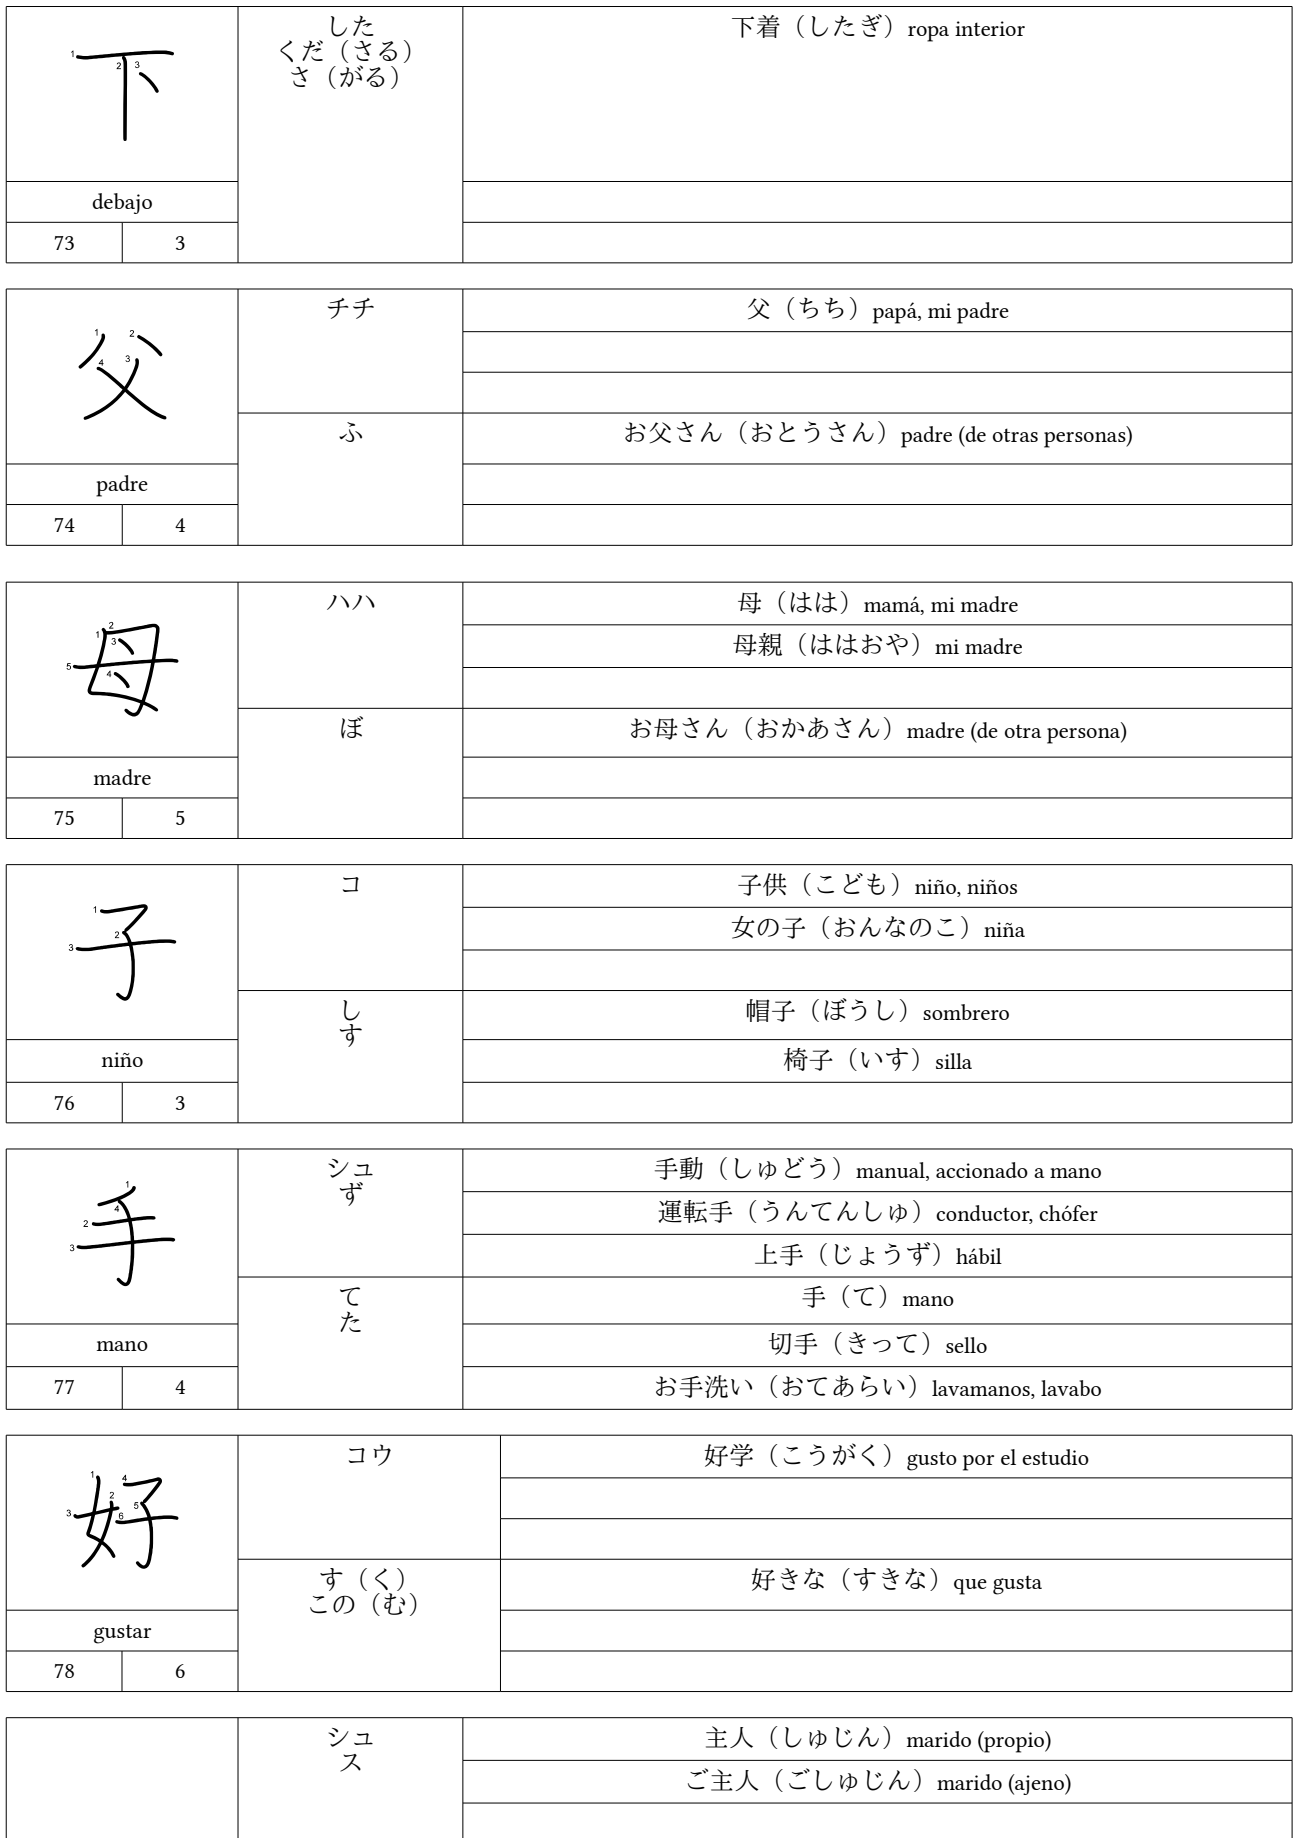 下
1
2
3
debajo
73 3
した
くだ（さる）
さ（がる）
下着（したぎ）ropa interior
父
1
2
3
4
padre
74 4
チチ
父（ちち）papá, mi padre
ふ
お父さん（おとうさん）padre (de otras personas)
母
1
2
3
4
5
madre
75 5
ハハ
母（はは）mamá, mi madre
母親（ははおや）mi madre
ぼ
お母さん（おかあさん）madre (de otra persona)
子
1
2
3
niño
76 3
コ
子供（こども）niño, niños
女の子（おんなのこ）niña
し
す
帽子（ぼうし）sombrero
椅子（いす）silla
手
1
2
3
4
mano
77 4
シュ
ず
手動（しゅどう）manual, accionado a mano
運転手（うんてんしゅ）conductor, chófer
上手（じょうず）hábil
て
た
手（て）mano
切手（きって）sello
お手洗い（おてあらい）lavamanos, lavabo
好
1
2
3
4
5
6
gustar
78 6
コウ
好学（こうがく）gusto por el estudio
す（く）
この（む）
好きな（すきな）que gusta
シュ
ス
主人（しゅじん）marido (propio)
ご主人（ごしゅじん）marido (ajeno)